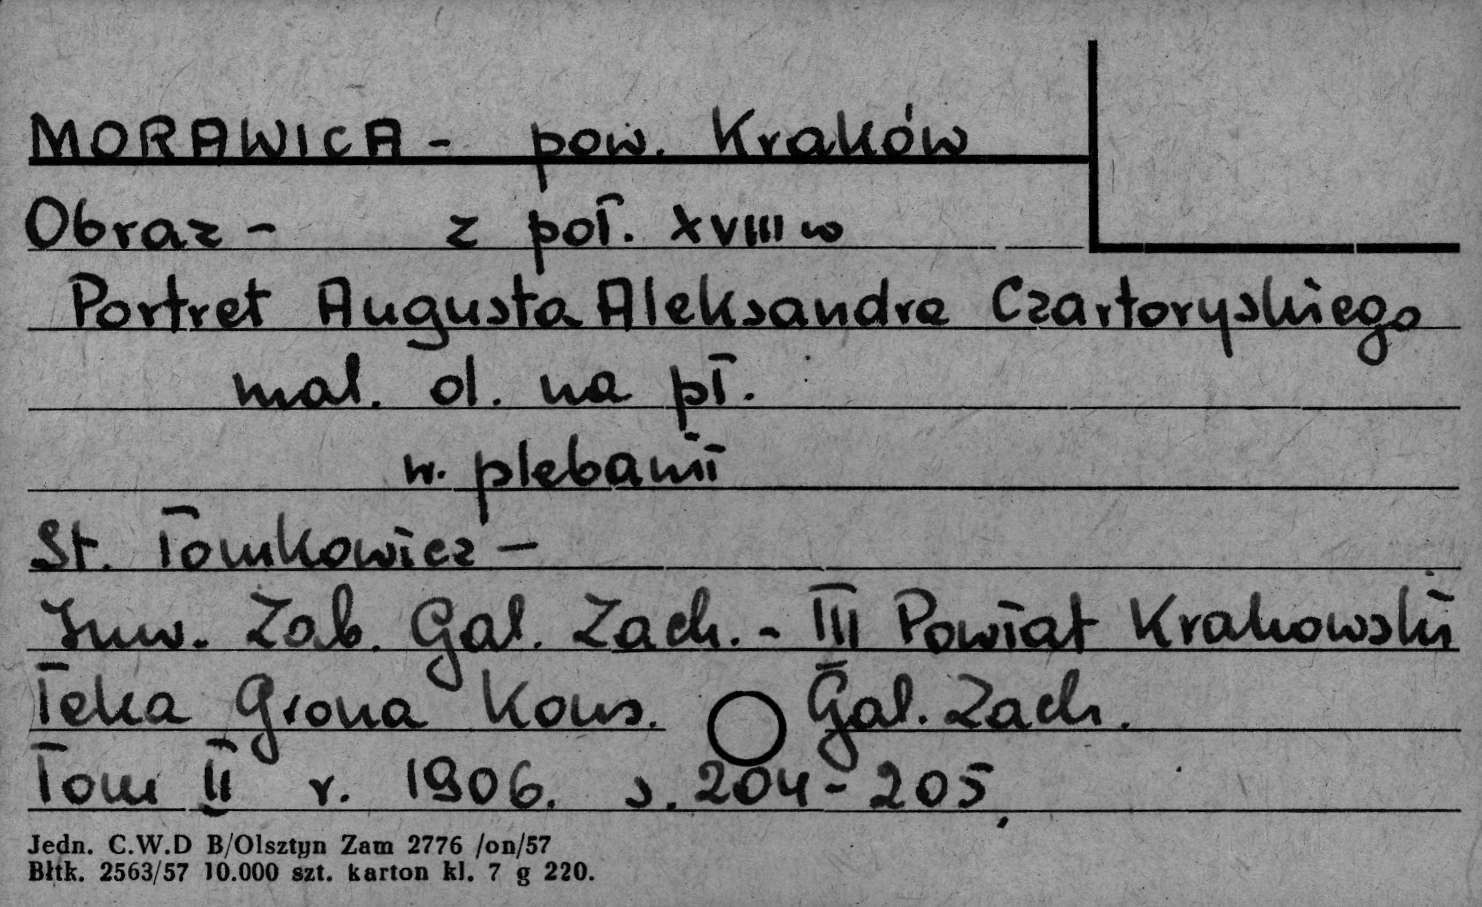 MORAWICA - pow. Kraków
Obraz - z poł. XVIII w
Portret Augusta Aleksandra Czartoryskiego
mal. ol. na pł.
w. plebanii
St. Tomkowicz -
Inw. Zab. Gal. Zach. - III Powiat Krakowski
Teka Grona Kons. Gal. Zach.
Tom II r. 1906. s. 204-205,
Jedn. C.W.D B/Olsztyn Zam 2776 /on/57
Błtk. 2563/57 10.000 szt. karton kl. 7 g 220.